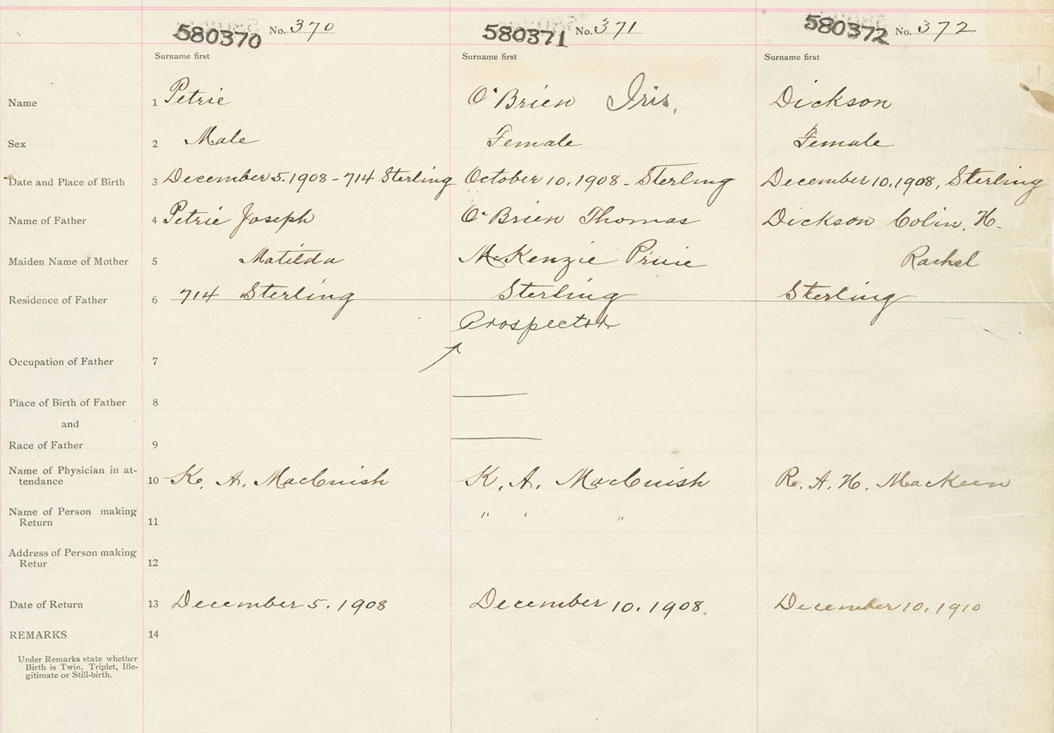 580370 No. 370 580371 No. 371 580372 No. 372
Surname first Surname first Surname first
Name 1 Petrie O'Brien Iris, Dickson
Sex 2 Male Female Female
Date and Place of Birth 3 December 5. 1908 - 714 Sterling October 10, 1908 - Sterling December 10, 1908, Sterling
Name of Father 4 Petrie Joseph O'Brien Thomas Dickson Colin. H.
Maiden Name of Mother 5 Matilda McKenzie Rachel
Residence of Father 6 714 Sterling Sterling Sterling
Prospector
Occupation of Father 7
Place of Birth of Father 8
and
Race of Father 9
Name of Physician in at-
tendance 10 K. A. MacCuish K. A. MacCuish R. A. H. MacKeen
Name of Person making
Return 11 " " "
Address of Person making
Retur 12
Date of Return 13 December 5. 1908 December 10. 1908. December 10, 1910
REMARKS 14
Under Remarks state whether
Birth is Twin, Triplet, Ille-
gitimate or Still-birth.